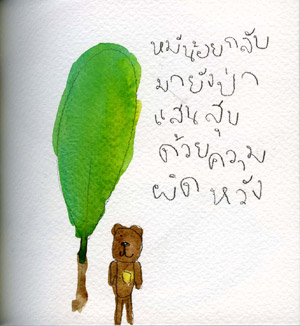 หมีน้อยกลับ
มายังป่า
แสนสุข
ด้วยความ
ผิดหวัง